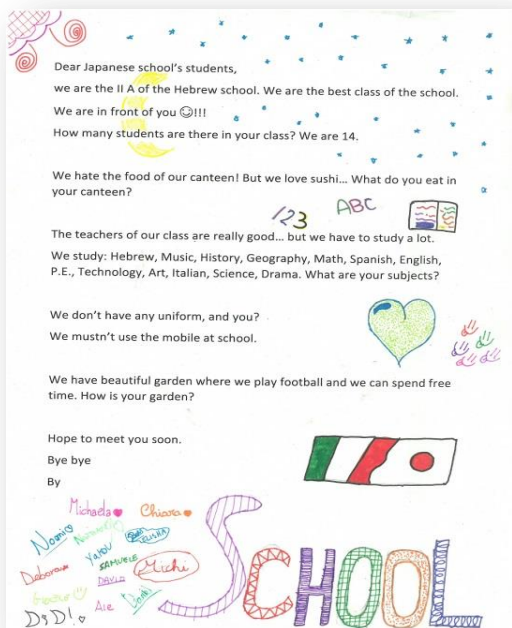 Dear Japanese school's students,
we are the II A of the Hebrew school. We are the best class of the school.
We are in front of you ☺!!!
How many students are there in your class? We are 14.
We hate the food of our canteen! But we love sushi... What do you eat in
your canteen?
123
ABC
The teachers of our class are really good... but we have to study a lot.
We study: Hebrew, Music, History, Geography, Math, Spanish, English,
P.E., Technology, Art, Italian, Science, Drama. What are your subjects?
We don't have any uniform, and you?
We mustn't use the mobile at school.
We have beautiful garden where we play football and we can spend free
time. How is your garden?
Hope to meet you soon.
Bye bye
By
Michaela
Chiara
ELISHA
SAMUELE
DAVID
Michi
Deborah
Ale
SCHOOL